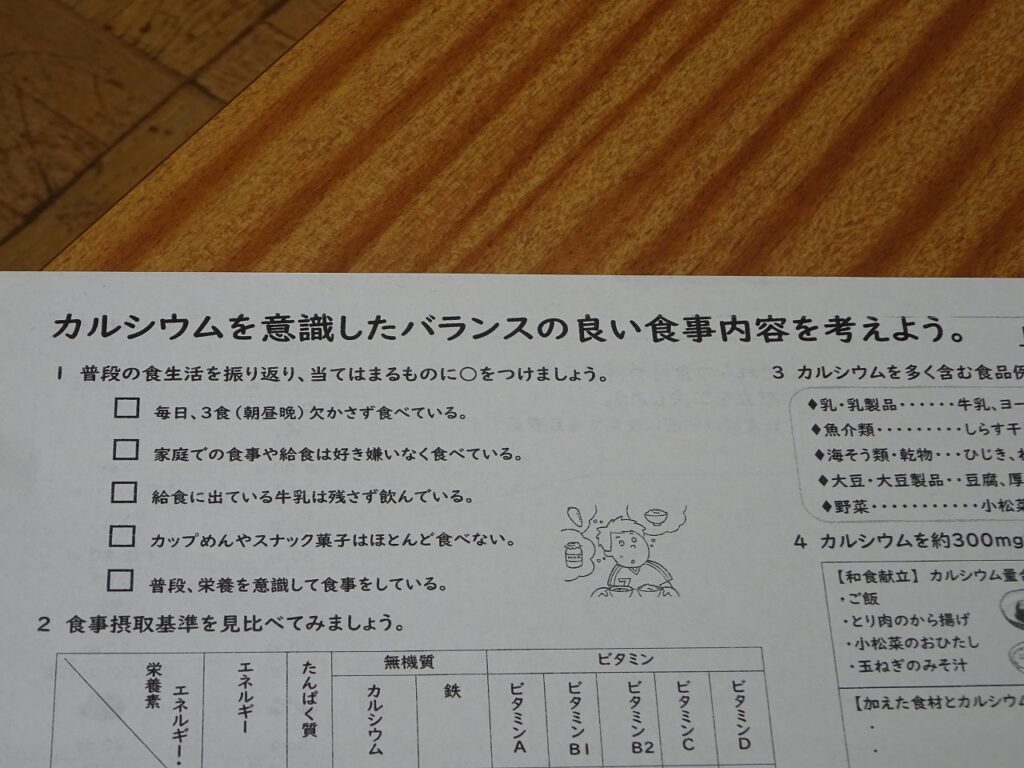 カルシウムを意識したバランスの良い食事内容を考えよう。
1 普段の食生活を振り返り、当てはまるものに○をつけましょう。
毎日、3食(朝昼晩)欠かさず食べている。
家庭での食事や給食は好き嫌いなく食べている。
給食に出ている牛乳は残さず飲んでいる。
カップめんやスナック菓子はほとんど食べない。
普段、栄養を意識して食事をしている。
2 食事摂取基準を見比べてみましょう。
栄養素
エネルギー・
エネルギー
たんぱく質
無機質
カルシウム
鉄
ビタミン
ビタミンA
ビタミンB1
ビタミンB2
ビタミンC
ビタミンD
3 カルシウムを多く含む食品例
♦乳・乳製品・・・・・・牛乳、ヨー
♦魚介類・・・・・・・・・しらす干
♦海そう類・乾物・・・ひじき、
♦大豆・大豆製品・・豆腐、厚
♦野菜・・・・・・・・・・・小松菜
4 カルシウムを約300mg
【和食献立】 カルシウム量
・ご飯
・とり肉のから揚げ
・小松菜のおひたし
・玉ねぎのみそ汁
【加えた食材とカルシウム
・
・